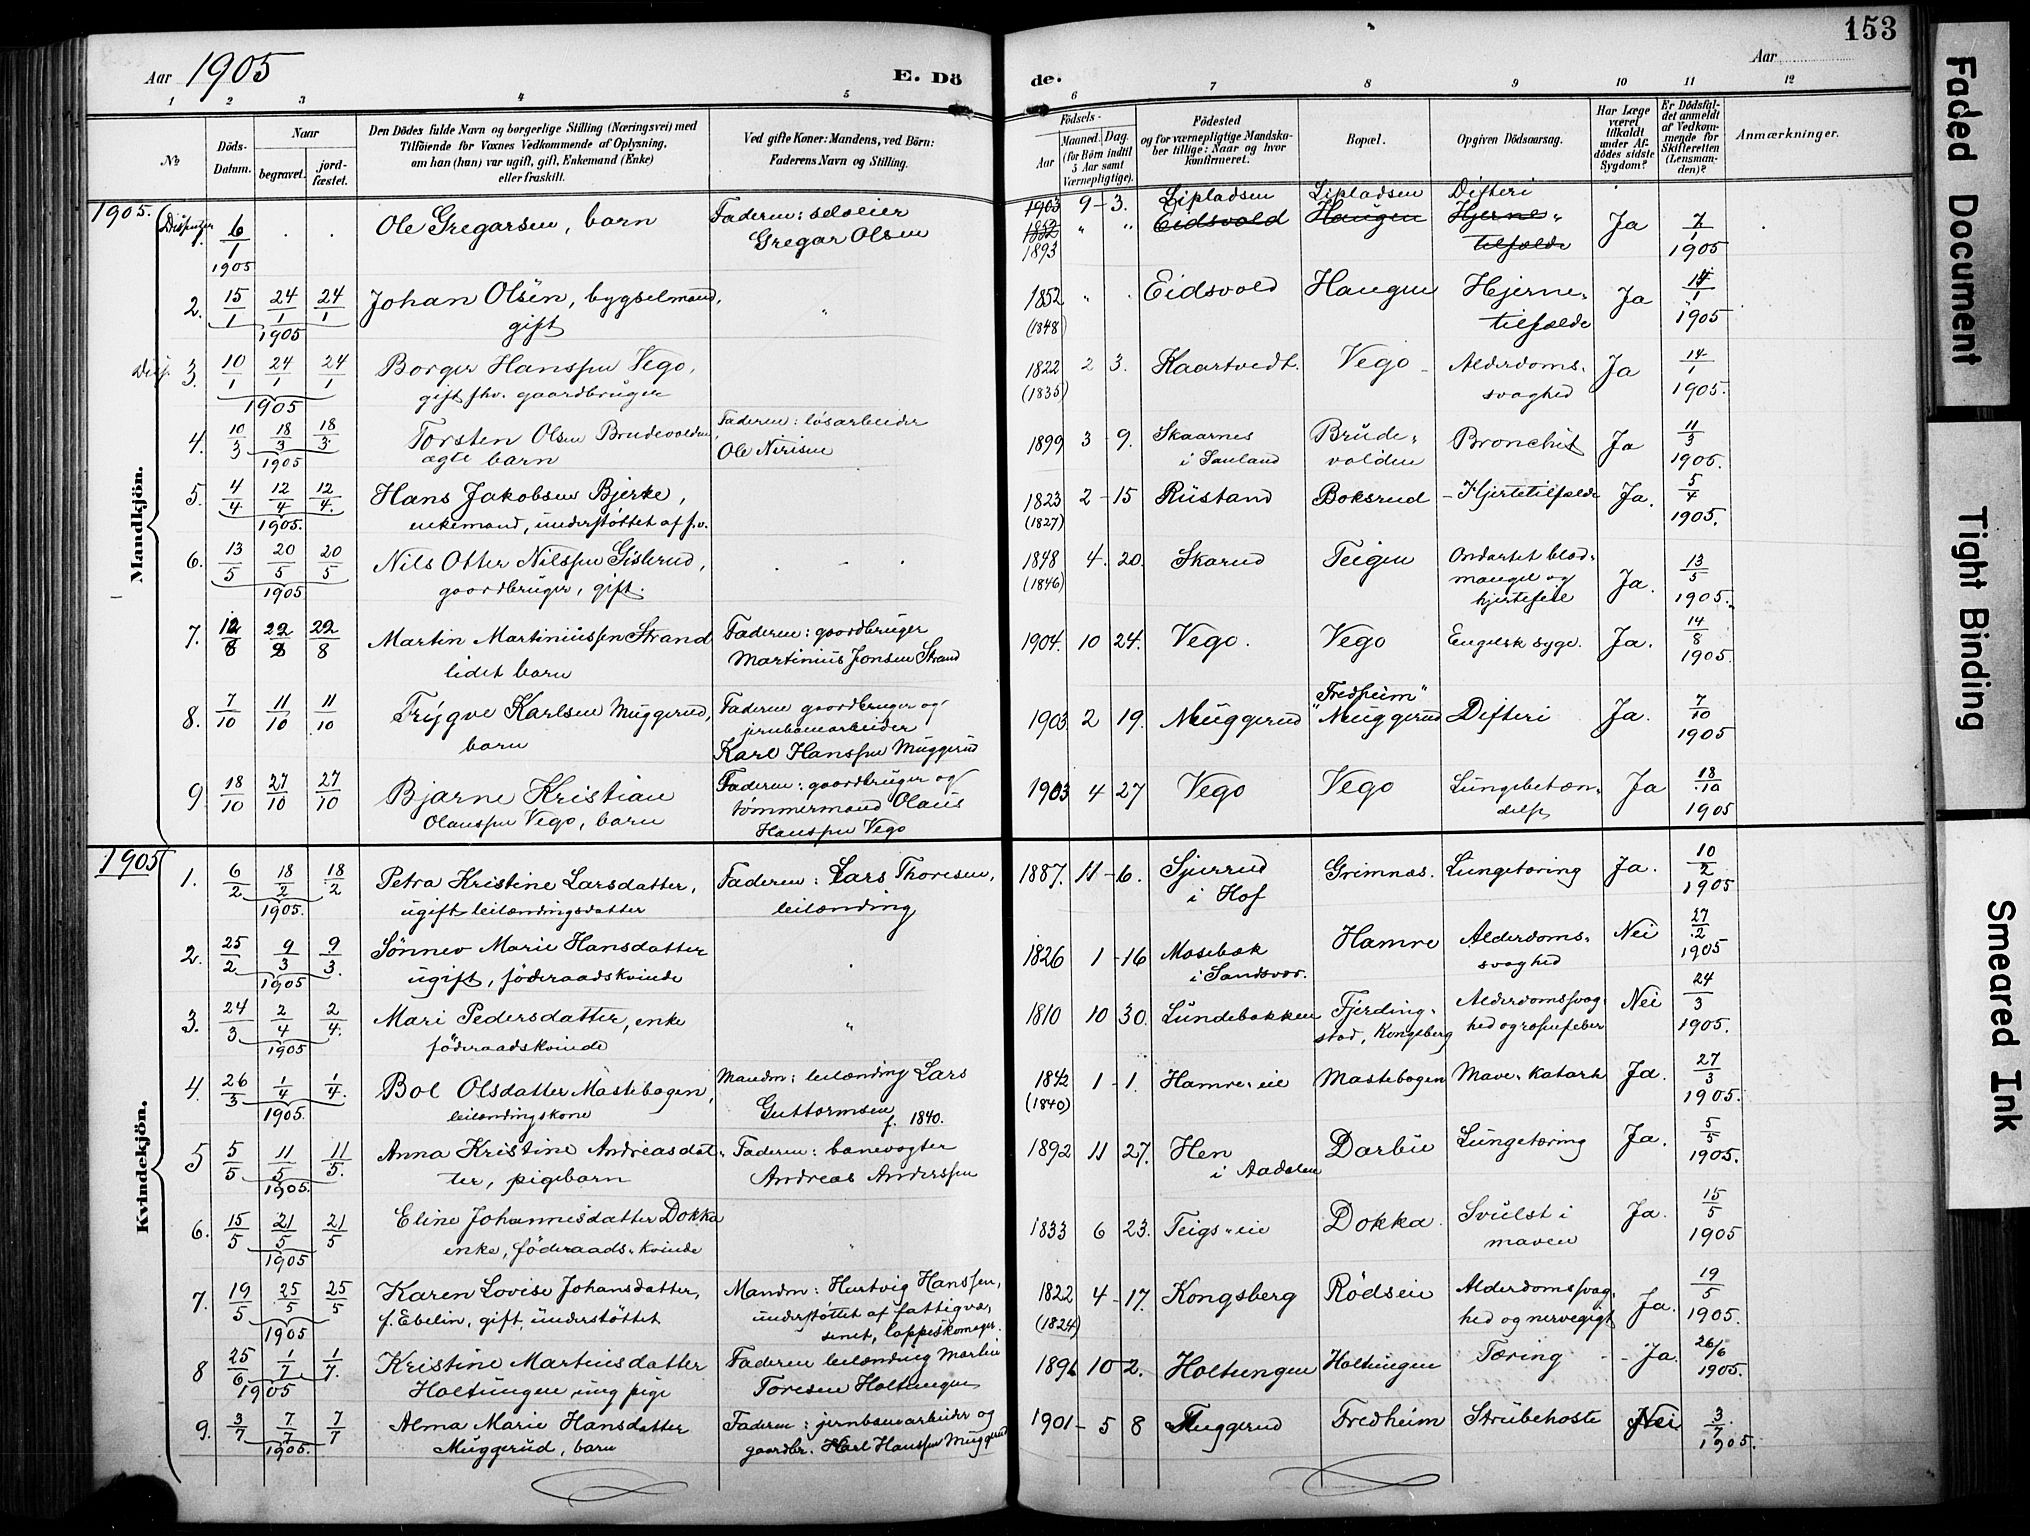 153
Aar 1905
E. Dö
de.
Aar
1 2 3 4 5 6 7 8 9 10 11 12
No
Döds-
Datum.
Naar
begravet.
jord-
fæstet.
Den Dödes fulde Navn og borgerlige Stilling (Næringsvei) med
Tilföiende for Voxnes Vedkommende af Oplysning,
om han (hun) var ugift, gift, Enkemand (Enke)
eller fraskilt.
Ved gifte Koner: Mandens, ved Börn:
Faderens Navn og Stilling.
Födsels-
Aar
Maaned. Dag.
(for Börn indtil
5 Aar samt
Værnepligtige).
Födested
og for værnepligtige Mandska-
ber tillige: Naar og hvor
konfirmeret.
Bopæl.
Opgiven Dödsaarsag.
Har Læge
været
tilkaldt
under Af-
dödes sidste
Sygdom?
Er Dödsfal-
det anmeldt
af Vedkom-
mende for
Skifteretten
(Lensman-
den)?
Anmærkninger.
Mandkjön.
1905.
1. 6/1 1905 Ole Gregarsen, barn Faderen: selveier
Gregar Olsen
1903 9 - 3. Lipladsen Lipladsen Difteri
1852 Eidsvold Haugen Hjerne-
1893 tilfælde Ja 7/1 1905
2. 15/1 24/1 24/1 1905 Johan Olsen, bygselmand,
gift
1852 (1848) Eidsvold Haugen Hjerne-
tilfælde Ja 14/1 1905
Disp. 3. 10/1 24/1 24/1 1905 Borger Hanssen Vego,
gift fhv. gaardbruger
1822 (1835) 2 3. Kaartvedt. Vego Alderdoms-
svaghed Ja 14/1 1905.
4. 10/3 18/3 18/3 1905 Torsten Olsen Brudevolden
ægte barn
Faderen: løsarbeider
Ole Nirisen
1899 3 - 9. Skaarnes
i Sauland
Brude-
volden
Bronchit Ja 11/3 1905.
5. 4/4 12/4 12/4 1905. Hans Jakobsen Bjerke,
enkemand, understøttet af f.v.
1823 (1827) 2 - 15 Rustand Boksrud Hjertetilfælde Ja. 5/4 1905.
6. 13/5 20/5 20/5 1905 Nils Otter Nilssen Gislerud,
gaardbruger, gift.
1848 (1846) 4. 20. Skarud Teigen Ondartet blod-
mangel og
hjertefeil Ja. 13/5 1905.
7. 12/8 22/8 22/8 Martin Martiniussen Strand
lidet barn
Faderen: gaardbruger
Martinius Jonsen Strand
1904. 10 24. Vego. Vego Engelsk syge. Ja. 14/8 1905.
8. 7/10 11/10 11/10 Trygve Karlsen Muggerud,
barn
Faderen gaardbruger og
jernbanearbeider
Karl Hanssen Muggerud
1903 2 19. Muggerud "Fredheim"
Muggerud Difteri Ja. 7/10 1905
9 18/10 27/10 27/10 Bjarne Kristian
Olaussen Vego, barn
Faderen: gaardbruger og
tømmermand Olaus
Hanssen Vego
1903 4 27 Vego Vego Lungebetæn-
delse Ja 18/10 1905
Kvindekjön.
1905
1. 6/2 18/2 18/2 1905. Petra Kristine Larsdatter,
ugift leilændingsdatter
Faderen: Lars Thoresen,
leilænding
1887. 11 - 6. Sjurrud
i Hof
Grimnæs. Lungetæring Ja. 10/2 1905
2. 25/2 9/3 9/3. 1905 Sønnev Marie Hansdatter
ugift, föderaadskvinde
1826 1 - 16 Mosebæk
i Sandsvær.
Hamre Alderdoms-
svaghed Nei 27/2 1905
3. 24/3 2/4 2/4. 1905 Mari Pedersdatter, enke
föderaadskvinde
1810 10 30. Lundebakken Fjerding-
stad, Kongsberg
Alderdomssvag-
hed og rosenfeber Nei 24/3 1905.
4. 26/3 1/4 1/4. 1905. Bol Olsdatter Mastebogen,
leilændingskone
Manden: leilænding Lars
Guttormsen
f. 1840.
1842 (1840) 1 - 1. Hamre-eie Mastebogen Mave-katarh Ja. 27/3 1905.
5 5/5 11/5 11/5. 1905. Anna Kristine Andreasdat-
ter, pigebarn
Faderen: banevogter
Andreas Anderssen
1892 11 27. Hen
i Aadalen
Darbu Lungetæring Ja. 5/5 1905.
6. 15/5 21/5 21/5 1905 Eline Johannesdatter Dokka
enke, föderaads-kvinde
1833 6 23. Teigs-eie Dokka. Svulst i
maven Ja. 15/5 1905
7. 19/5 25/5 25/5 1905 Karen Lovise Johansdatter,
f. Ebelin, gift, understøttet
Manden: Hartvig Hanssen,
understøttet af fattigvæ-
senet, lappeskomager.
1822 (1824) 4 - 17. Kongsberg Rödseie Alderdomssvag-
hed og nervegigt Ja. 19/5 1905.
8 25/6 1/7 1/7. 1905 Kristine Martinsdatter
Holtungen, ung pige
Faderen leilænding Martin
Toresen Holtungen
1891 10 - 2. Holtungen Holtungen Tæring Ja. 26/6 1905.
9. 3/7 7/7 7/7 1905. Alma Marie Hansdatter
Muggerud, barn
Faderen: jernbanearbeider og
gaardbr. Karl Hanssen Muggerud
1901 - 5 8 Muggerud Fredheim Strubehoste Nei 3/7 1905.
Faded Document
Tight Binding
Smeared Ink